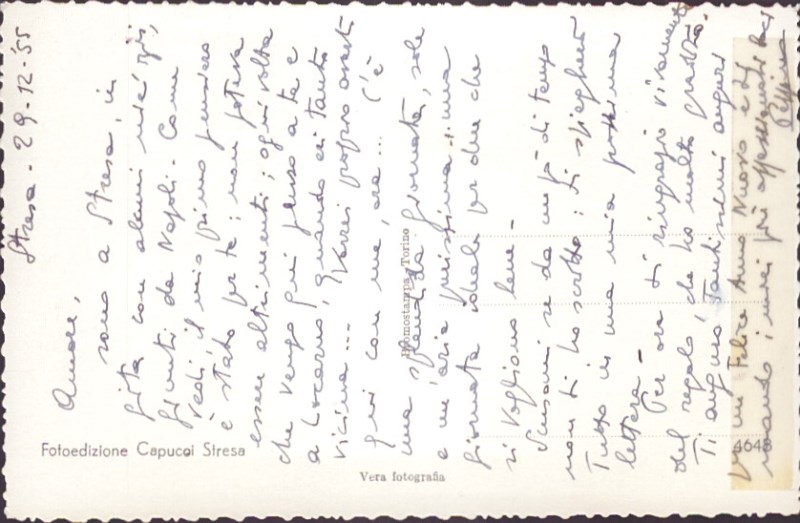 Stresa - 29-12-55
Amore,
sono a Stresa, in
gita con alcuni miei zii,
giunti da Napoli. Come
vedi il mio primo pensiero
è stato per te; non poteva
essere altrimenti; ogni volta
che vengo qui penso a te e
a Locarno, quando eri tanto
vicina... Vorrei proprio averti
qui con me, ora... C'è
una splendida giornata, sole
e un'aria purissima: una
giornata ideale per due che
si vogliono bene -
Scusami se da un pò di tempo
non ti ho scritto: ti spiegherò
Tutto in una mia prossima
lettera -
Per ora ti ringrazio vivamente
del regalo, che ho molto gradito.
Ti auguro tantissimi auguri
Felice Anno Nuovo e ti
mando i miei più affettuosi baci
Fotoedizione Capucci Stresa
Vera fotografia
Bromostampa Torino
4648